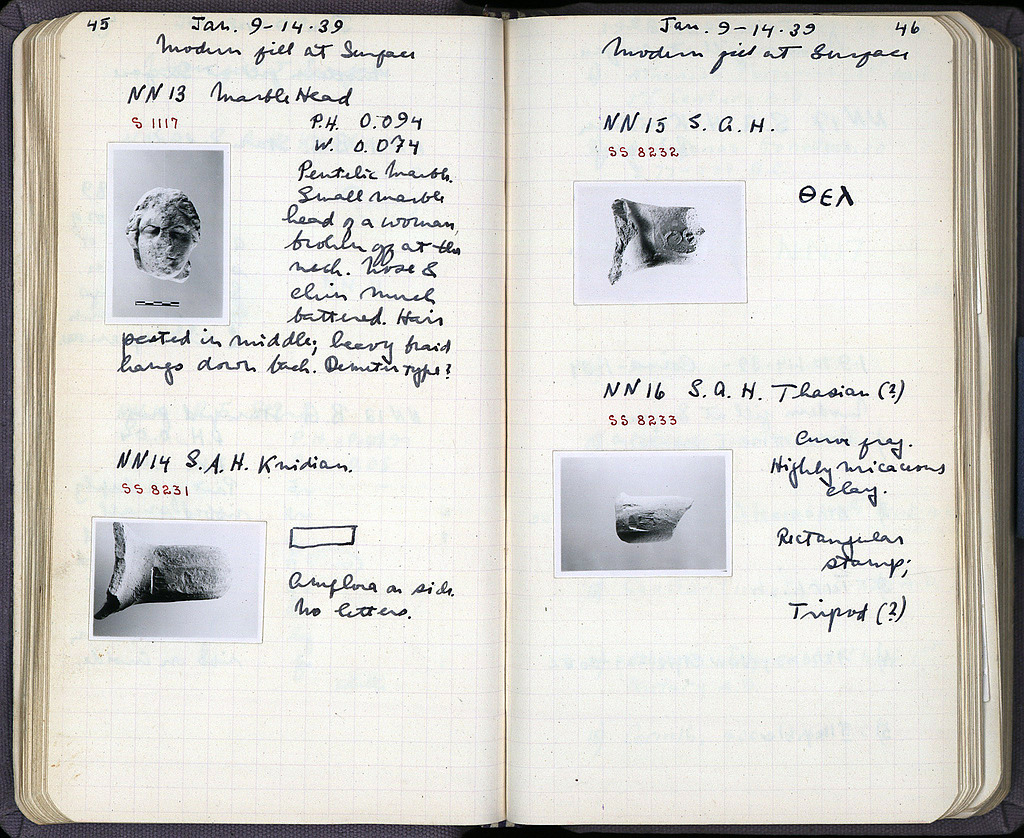 45
Jan. 9-14-39
Modern fill at Surface
NN 13 Marble Head
S 1117
P.H. 0.094
W. 0.074
Pentelic marble.
Small marble
head of a woman,
broken off at the
neck. Nose &
chin much
battered. Hair
parted in middle; heavy braid
hangs down back. Demeter type?
NN14 S.A.H. Knidian.
SS 8231
Amphora on side.
No letters.
Jan. 9-14-39
46
Modern fill at Surface
NN 15 S.A.H.
SS 8232
ΘΕΛ
NN 16 S.A.H. Thasian (?)
SS 8233
Curve frag.
Highly micaceous
clay.
Rectangular
stamp;
Tripod (?)